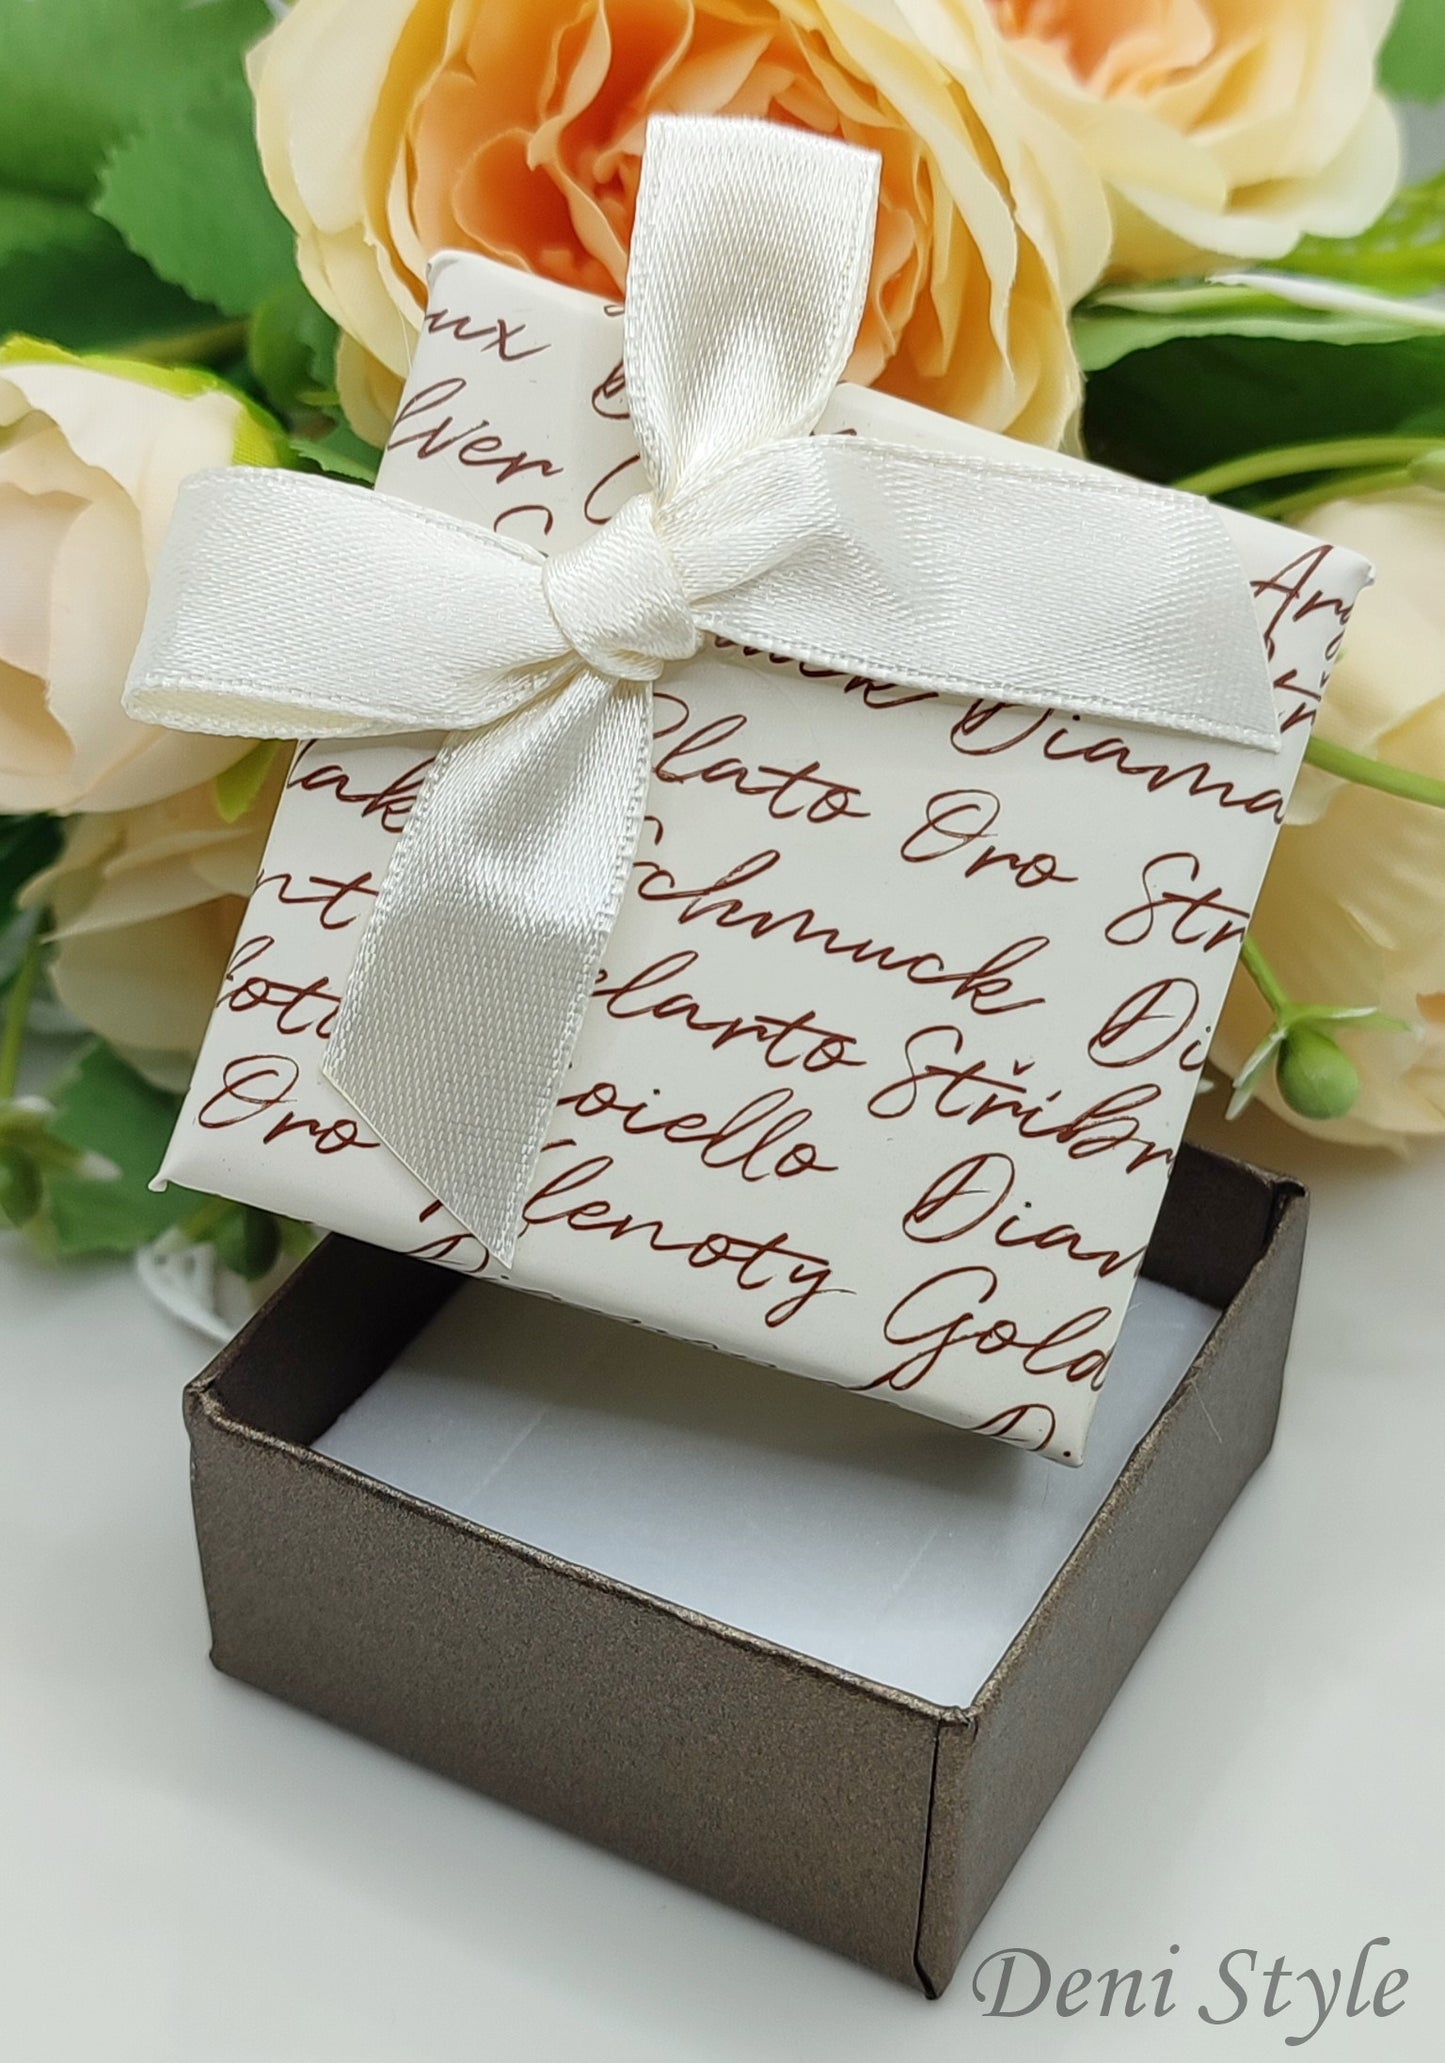 ux
lver
Ar
Diama
lak Plato Oro Str
nt Schmuck Di
loti elarto Stříbr
Oro oiello Diam
Klenoty Gold
D
Deni Style